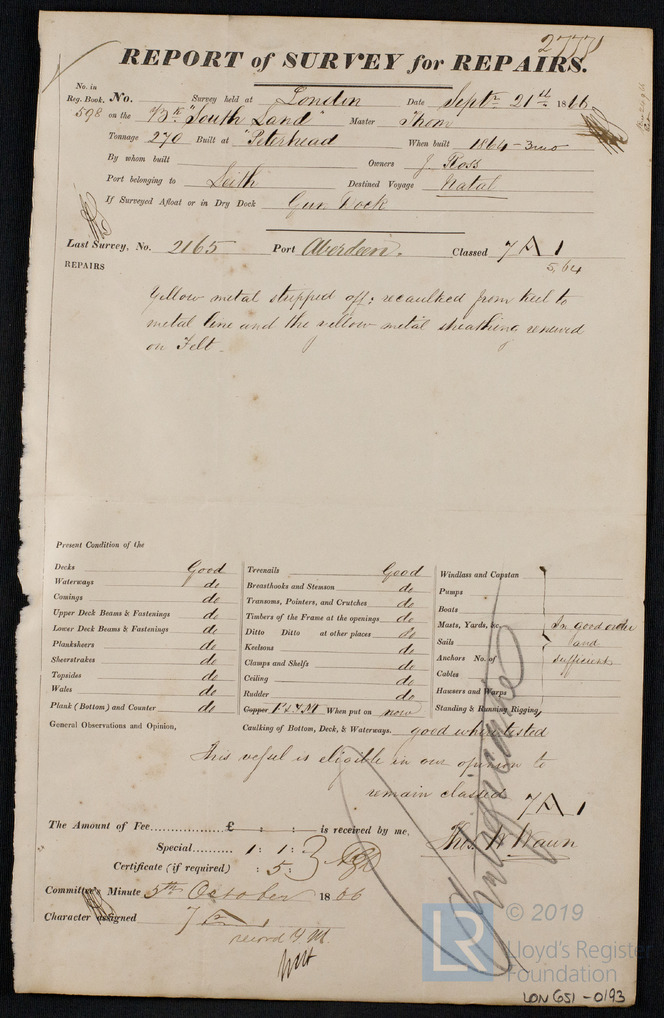 2773
REPORT of SURVEY for REPAIRS.
No. in
Reg. Book. No. Survey held at London Date Septr 21st 1866
598 on the "South Land" Master Thom
Tonnage 270 Built at "Peterhead" When built 1864 - 3mo
By whom built Owners J. Ross
Port belonging to Leith Destined Voyage Natal
If Surveyed Afloat or in Dry Dock Gun Dock
Last Survey, No. 2165 Port Aberdeen. Classed 7 A 1
5,64
REPAIRS
Yellow metal stripped off: recaulked from keel to
metal line and the yellow metal sheathing renewed
on Felt.
Present Condition of the
Decks Good Treenails Good Windlass and Capstan
Waterways do Breasthooks and Stemson do Pumps
Comings do Transoms, Pointers, and Crutches do Boats
Upper Deck Beams & Fastenings do Timbers of the Frame at the openings do Masts, Yards, &c. In good order
Lower Deck Beams & Fastenings do Ditto Ditto at other places do Sails and
Planksheers do Keelsons do Anchors No. of sufficient
Sheerstrakes do Clamps and Shelfs do Cables
Topsides do Ceiling do Hawsers and Warps
Wales do Rudder do Standing & Running Rigging,
Plank (Bottom) and Counter do Copper F & Y M When put on now
General Observations and Opinion, Caulking of Bottom, Deck, & Waterways. good where tested
This vessel is eligible in our opinion to
remain classed 7 A 1
The Amount of Fee £ : : is received by me,
Special 1 : 1 :
Certificate (if required) : 5 :
Committee's Minute 5th October 1866
Character assigned 7 A 1
record Y.M.
© 2019
LR Lloyd's Register
Foundation
LON 651 - 0193